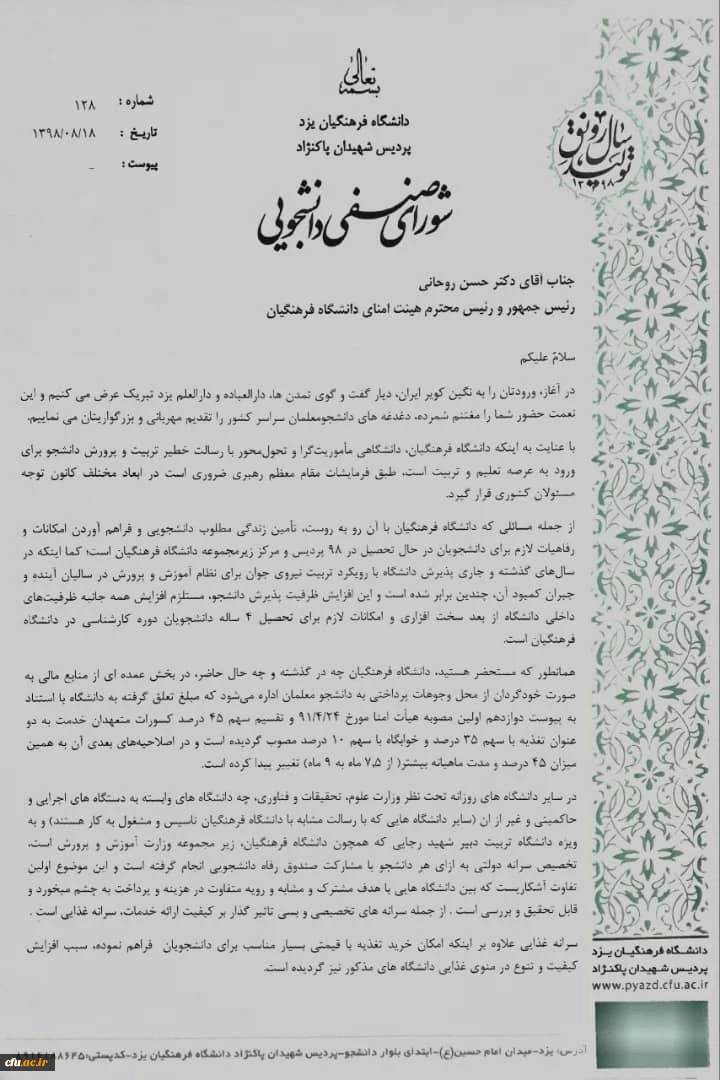 بسمه تعالی
دانشگاه فرهنگیان یزد
پردیس شهیدان پاکنژاد
شورای صنفی دانشجویی
شماره : ۱۲۸
تاریخ : ۱۳۹۸/۰۸/۱۸
پیوست : _
سال رونق
تولید
۱۳۹۸
جناب آقای دکتر حسن روحانی
رئیس جمهور و رئیس محترم هیئت امنای دانشگاه فرهنگیان
سلامٌ علیکم
در آغاز، ورودتان را به نگین کویر ایران، دیار گفت و گوی تمدن ها، دارالعباده و دارالعلم یزد تبریک عرض می کنیم و این
نعمت حضور شما را مغتنم شمرده، دغدغه های دانشجومعلمان سراسر کشور را تقدیم مهربانی و بزرگواریتان می نماییم.
با عنایت به اینکه دانشگاه فرهنگیان، دانشگاهی مأموریت‌گرا و تحول‌محور با رسالت خطیر تربیت و پرورش دانشجو برای
ورود به عرصه تعلیم و تربیت است، طبق فرمایشات مقام معظم رهبری ضروری است در ابعاد مختلف کانون توجه
مسئولان کشوری قرار گیرد.
از جمله مسائلی که دانشگاه فرهنگیان با آن رو به روست، تأمین زندگی مطلوب دانشجویی و فراهم آوردن امکانات و
رفاهیات لازم برای دانشجویان در حال تحصیل در ۹۸ پردیس و مرکز زیرمجموعه دانشگاه فرهنگیان است؛ کما اینکه در
سال‌های گذشته و جاری پذیرش دانشگاه با رویکرد تربیت نیروی جوان برای نظام آموزش و پرورش در سالیان آینده و
جبران کمبود آن، چندین برابر شده است و این افزایش ظرفیت پذیرش دانشجو، مستلزم افزایش همه جانبه ظرفیت‌های
داخلی دانشگاه از بعد سخت افزاری و امکانات لازم برای تحصیل ۴ ساله دانشجویان دوره کارشناسی در دانشگاه
فرهنگیان است.
همانطور که مستحضر هستید، دانشگاه فرهنگیان چه در گذشته و چه حال حاضر، در بخش عمده ای از منابع مالی به
صورت خودگردان از محل وجوهات پرداختی به دانشجو معلمان اداره می‌شود که مبلغ تعلق گرفته به دانشگاه با استناد
به پیوست دوازدهم اولین مصوبه هیأت امنا مورخ ۹۱/۴/۲۴ و تقسیم سهم ۴۵ درصد کسورات متعهدان خدمت به دو
عنوان تغذیه با سهم ۳۵ درصد و خوابگاه با سهم ۱۰ درصد مصوب گردیده است و در اصلاحیه‌های بعدی آن به همین
میزان ۴۵ درصد و مدت ماهیانه بیشتر( از ۷,۵ ماه به ۹ ماه) تغییر پیدا کرده است.
در سایر دانشگاه های روزانه تحت نظر وزارت علوم، تحقیقات و فناوری، چه دانشگاه های وابسته به دستگاه های اجرایی و
حاکمیتی و غیر از ان (سایر دانشگاه هایی که با رسالت مشابه با دانشگاه فرهنگیان تاسیس و مشغول به کار هستند) و به
ویژه دانشگاه تربیت دبیر شهید رجایی که همچون دانشگاه فرهنگیان، زیر مجموعه وزارت آموزش و پرورش است،
تخصیص سرانه دولتی به ازای هر دانشجو با مشارکت صندوق رفاه دانشجویی انجام گرفته است و این موضوع اولین
تفاوت آشکاریست که بین دانشگاه هایی با هدف مشترک و مشابه و رویه متفاوت در هزینه و پرداخت به چشم میخورد و
قابل تحقیق و بررسی است . از جمله سرانه های تخصیصی و بسی تاثیر گذار بر کیفیت ارائه خدمات، سرانه غذایی است .
سرانه غذایی علاوه بر اینکه امکان خرید تغذیه با قیمتی بسیار مناسب برای دانشجویان فراهم نموده، سبب افزایش
کیفیت و تنوع در منوی غذایی دانشگاه های مذکور نیز گردیده است.
دانشگاه فرهنگیان یزد
پردیس شهیدان پاکنژاد
www.pyazd.cfu.ac.ir
آدرس: یزد-میدان امام حسین(ع)-ابتدای بلوار دانشجو-پردیس شهیدان پاکنژاد دانشگاه فرهنگیان یزد-کدپستی:
cfu.ac.ir